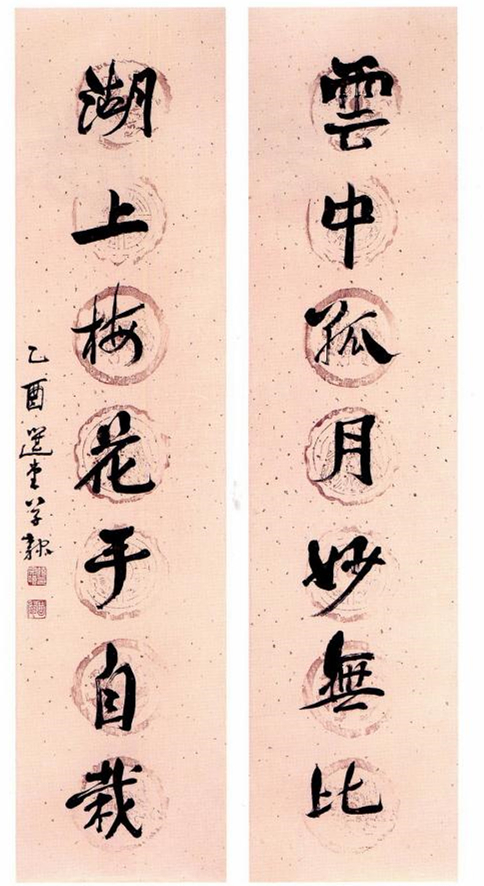 雲中孤月妙無比
湖上梅花手自栽
乙酉選堂